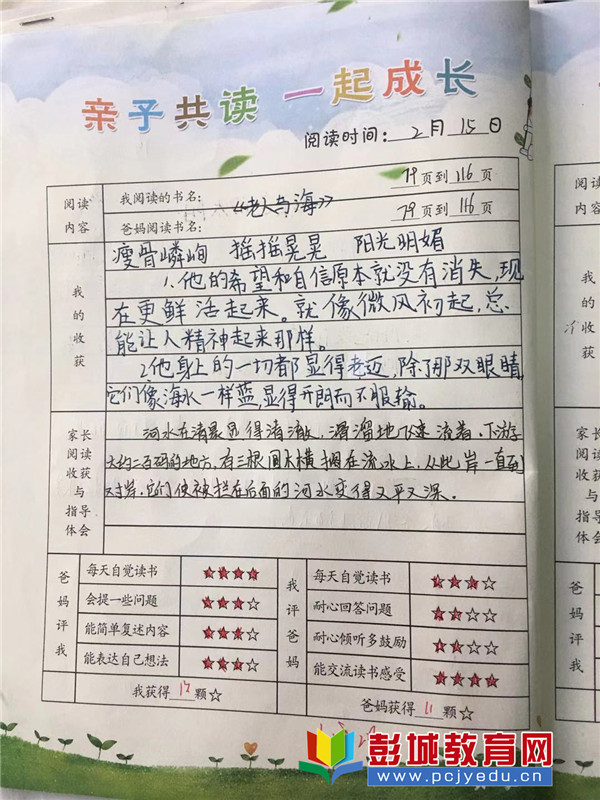 亲子共读 一起成长
阅读时间: 2月15日
阅读内容
我阅读的书名:
《老人与海》
79页到116页
爸妈阅读书名:
79页到116页
我的收获
瘦骨嶙峋 摇摇晃晃 阳光明媚
1.他的希望和自信原本就没有消失,现
在更鲜活起来。就像微风初起,总
能让人精神起来那样。
2他身上的一切都显得老迈,除了那双眼睛,
它们像海水一样蓝,显得开朗而不服输。
家长阅读收获与指导体会
河水在清晨显得清澈,滑溜地飞速流着。下游
大约二百码的地方,有三根圆木横搁在流水上,从此岸一直到
对岸。它们使被拦在后面的河水变得又平又深。
爸妈评我
每天自觉读书 ★★★★
会提一些问题 ★★★☆
能简单复述内容 ★★★☆
能表达自己想法 ★★★☆
我获得13颗☆
我评爸妈
每天自觉读书 ★★★☆
耐心回答问题 ★★☆☆
耐心倾听多鼓励 ★★☆☆
能交流读书感受 ★★★★
爸妈获得11颗☆
彭城教育网
www.pcjyedu.cn